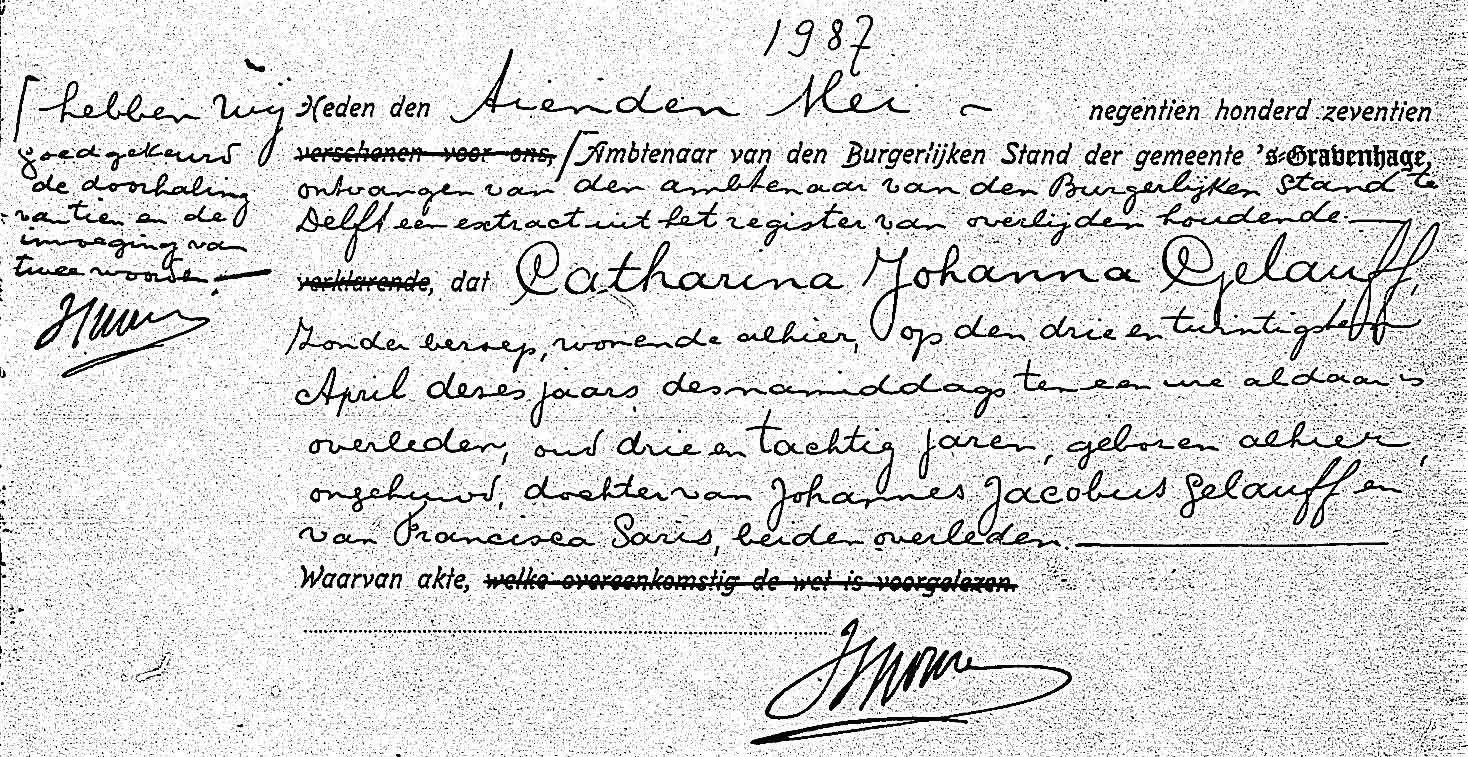 1987
Heden den tienden Mei negentien honderd zeventien
verschenen voor ons, Ambtenaar van den Burgerlijken Stand der gemeente 's-Gravenhage,
ontvangen van den ambtenaar van den Burgerlijken Stand te
Delft een extract uit het register van overlijden houdende
verklarende, dat Catharina Johanna Gelauff,
Zonder beroep, wonende alhier, op den drie en twintigsten
April dezes jaars desnamiddags ten een ure aldaar is
overleden, oud drie en tachtig jaren, geboren alhier,
ongehuwd, dochter van Johannes Jacobus Gelauff en
van Francisca Saris, beiden overleden.
Waarvan akte, welke overeenkomstig de wet is voorgelezen.
hebben wij
goedgekeurd
de doorhaling
van tien en de
invoeging van
twee woorden.